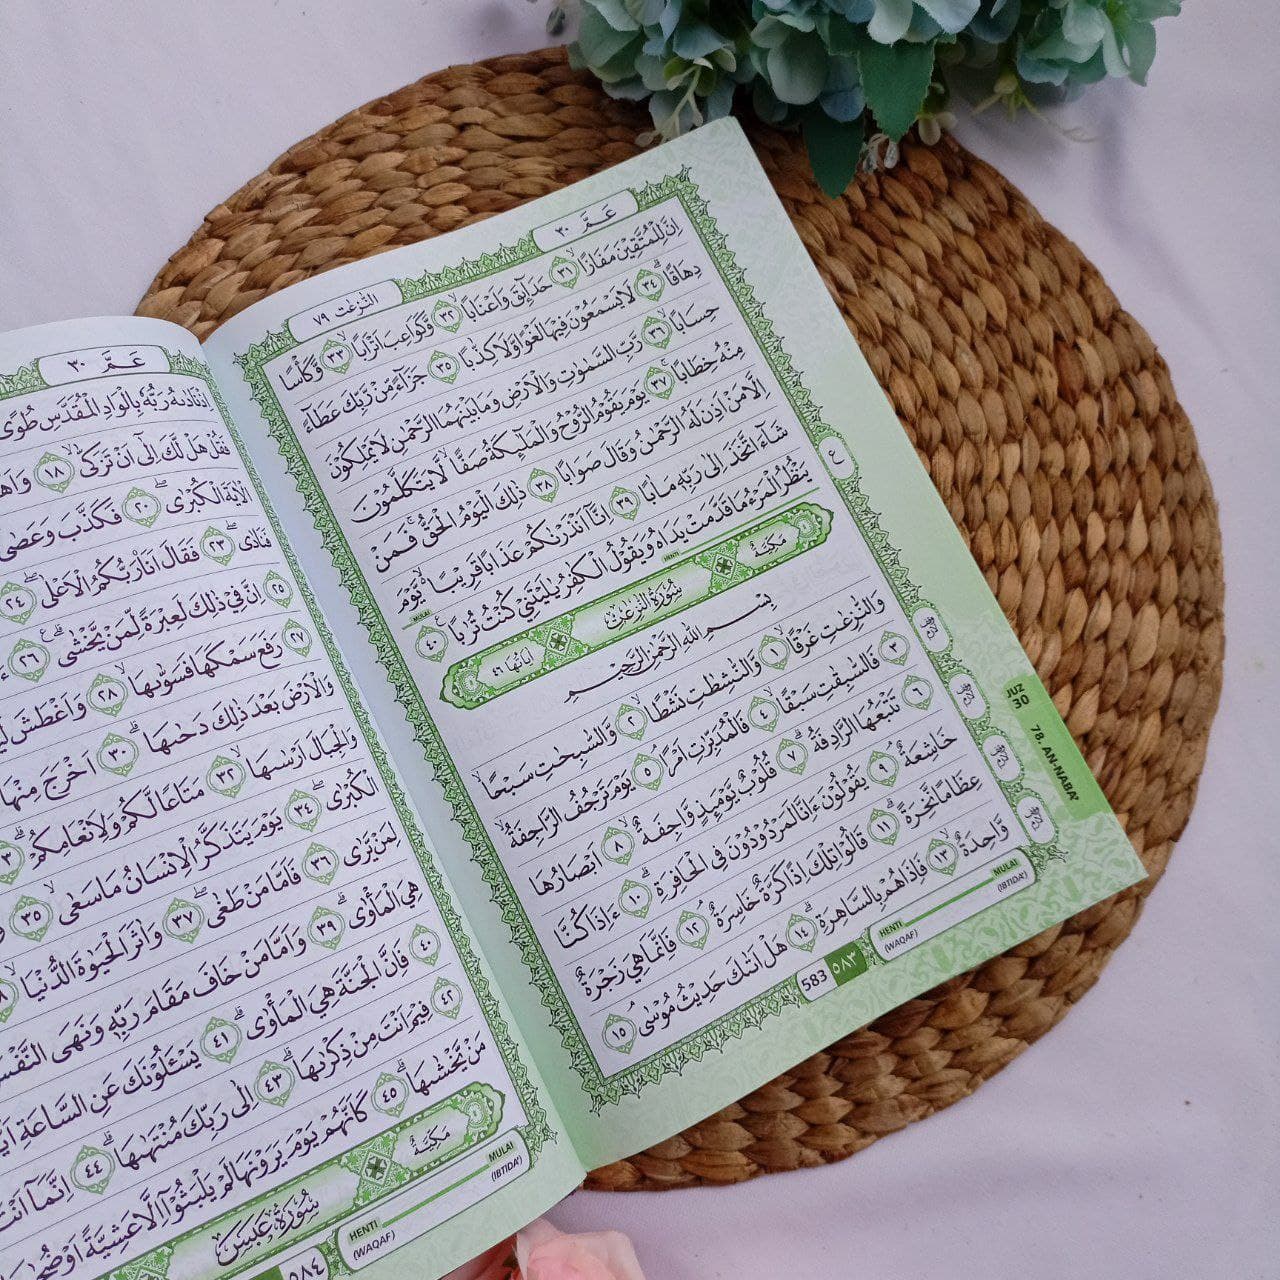 عَمَّ ٣٠
النّٰزعٰت ٧٩
اِنَّ لِلْمُتَّقِيْنَ مَفَازًاۙ ٣١ حَدَاۤىِٕقَ وَاَعْنَابًاۙ ٣٢ وَّكَوَاعِبَ اَتْرَابًاۙ ٣٣ وَّكَأْسًا
دِهَاقًاۗ ٣٤ لَا يَسْمَعُوْنَ فِيْهَا لَغْوًا وَّلَا كِذّٰبًا ٣٥ جَزَاۤءً مِّنْ رَّبِّكَ عَطَاۤءً
حِسَابًاۙ ٣٦ رَّبِّ السَّمٰوٰتِ وَالْاَرْضِ وَمَا بَيْنَهُمَا الرَّحْمٰنِ لَا يَمْلِكُوْنَ
مِنْهُ خِطَابًاۚ ٣٧ يَوْمَ يَقُوْمُ الرُّوْحُ وَالْمَلٰۤىِٕكَةُ صَفًّاۙ لَّا يَتَكَلَّمُوْنَ
اِلَّا مَنْ اَذِنَ لَهُ الرَّحْمٰنُ وَقَالَ صَوَابًا ٣٨ ذٰلِكَ الْيَوْمُ الْحَقُّۚ فَمَنْ
شَاۤءَ اتَّخَذَ اِلٰى رَبِّهٖ مَاٰبًا ٣٩ اِنَّآ اَنْذَرْنٰكُمْ عَذَابًا قَرِيْبًا ۙ يَّوْمَ
يَنْظُرُ الْمَرْءُ مَا قَدَّمَتْ يَدَاهُ وَيَقُوْلُ الْكٰفِرُ يٰلَيْتَنِيْ كُنْتُ تُرٰبًا ٤٠
HENTI
MULAI
مَكِّيَّةٌ سُوْرَةُ النّٰزِعٰتِ اٰيَاتُهَا ٤٦
بِسْمِ اللّٰهِ الرَّحْمٰنِ الرَّحِيْمِ
وَالنّٰزِعٰتِ غَرْقًاۙ ١ وَّالنّٰشِطٰتِ نَشْطًاۙ ٢ وَّالسّٰبِحٰتِ سَبْحًاۙ
٣ فَالسّٰبِقٰتِ سَبْقًاۙ ٤ فَالْمُدَبِّرٰتِ اَمْرًاۘ ٥ يَوْمَ تَرْجُفُ الرَّاجِفَةُۙ
٦ تَتْبَعُهَا الرَّادِفَةُۗ ٧ قُلُوْبٌ يَّوْمَىِٕذٍ وَّاجِفَةٌۙ ٨ اَبْصَارُهَا
خَاشِعَةٌۘ ٩ يَقُوْلُوْنَ ءَاِنَّا لَمَرْدُوْدُوْنَ فِى الْحَافِرَةِۗ ١٠ ءَاِذَا كُنَّا
عِظَامًا نَّخِرَةًۗ ١١ قَالُوْا تِلْكَ اِذًا كَرَّةٌ خَاسِرَةٌۘ ١٢ فَاِنَّمَا هِيَ زَجْرَةٌ
وَّاحِدَةٌۙ ١٣ فَاِذَا هُمْ بِالسَّاهِرَةِۗ ١٤ هَلْ اَتٰىكَ حَدِيْثُ مُوْسٰىۘ ١٥
ع
JUZ
30
78. AN-NABA'
MULAI
(IBTIDA')
HENTI
(WAQAF)
583 ٥٨٣
عَمَّ ٣٠
اِذْ نَادٰىهُ رَبُّهٗ بِالْوَادِ الْمُقَدَّسِ طُوًى
فَقُلْ هَلْ لَّكَ اِلٰٓى اَنْ تَزَكّٰىۙ ١٨
الْاٰيَةَ الْكُبْرٰىۖ ٢٠ فَكَذَّبَ وَعَصٰى
فَنَادٰىۖ ٢٣ فَقَالَ اَنَا۠ رَبُّكُمُ الْاَعْلٰىۖ ٢٤
٢٥ اِنَّ فِيْ ذٰلِكَ لَعِبْرَةً لِّمَنْ يَّخْشٰى ٢٦
٢٧ رَفَعَ سَمْكَهَا فَسَوّٰىهَاۙ ٢٨ وَاَغْطَشَ
وَالْاَرْضَ بَعْدَ ذٰلِكَ دَحٰىهَاۗ ٣٠ اَخْرَجَ مِنْهَا
وَالْجِبَالَ اَرْسٰىهَاۙ ٣٢ مَتَاعًا لَّكُمْ وَلِاَنْعَامِكُمْۗ
الْكُبْرٰىۖ ٣٤ يَوْمَ يَتَذَكَّرُ الْاِنْسَانُ مَا سَعٰىۙ ٣٥
لِمَنْ يَّرٰى ٣٦ فَاَمَّا مَنْ طَغٰىۖ ٣٧ وَاٰثَرَ الْحَيٰوةَ الدُّنْيَاۙ
هِيَ الْمَأْوٰىۗ ٣٩ وَاَمَّا مَنْ خَافَ مَقَامَ رَبِّهٖ وَنَهَى النَّفْسَ
٤٠ فَاِنَّ الْجَنَّةَ هِيَ الْمَأْوٰىۗ ٤١ يَسْـَٔلُوْنَكَ عَنِ السَّاعَةِ
٤٢ فِيْمَ اَنْتَ مِنْ ذِكْرٰىهَاۗ ٤٣ اِلٰى رَبِّكَ مُنْتَهٰىهَاۗ ٤٤ اِنَّمَآ اَنْتَ
مَنْ يَّخْشٰىهَاۗ ٤٥ كَاَنَّهُمْ يَوْمَ يَرَوْنَهَا لَمْ يَلْبَثُوْٓا اِلَّا عَشِيَّةً اَوْ
مَكِّيَّةٌ سُوْرَةُ عَبَسَ
MULAI
(IBTIDA')
HENTI
(WAQAF)
٥٨٤